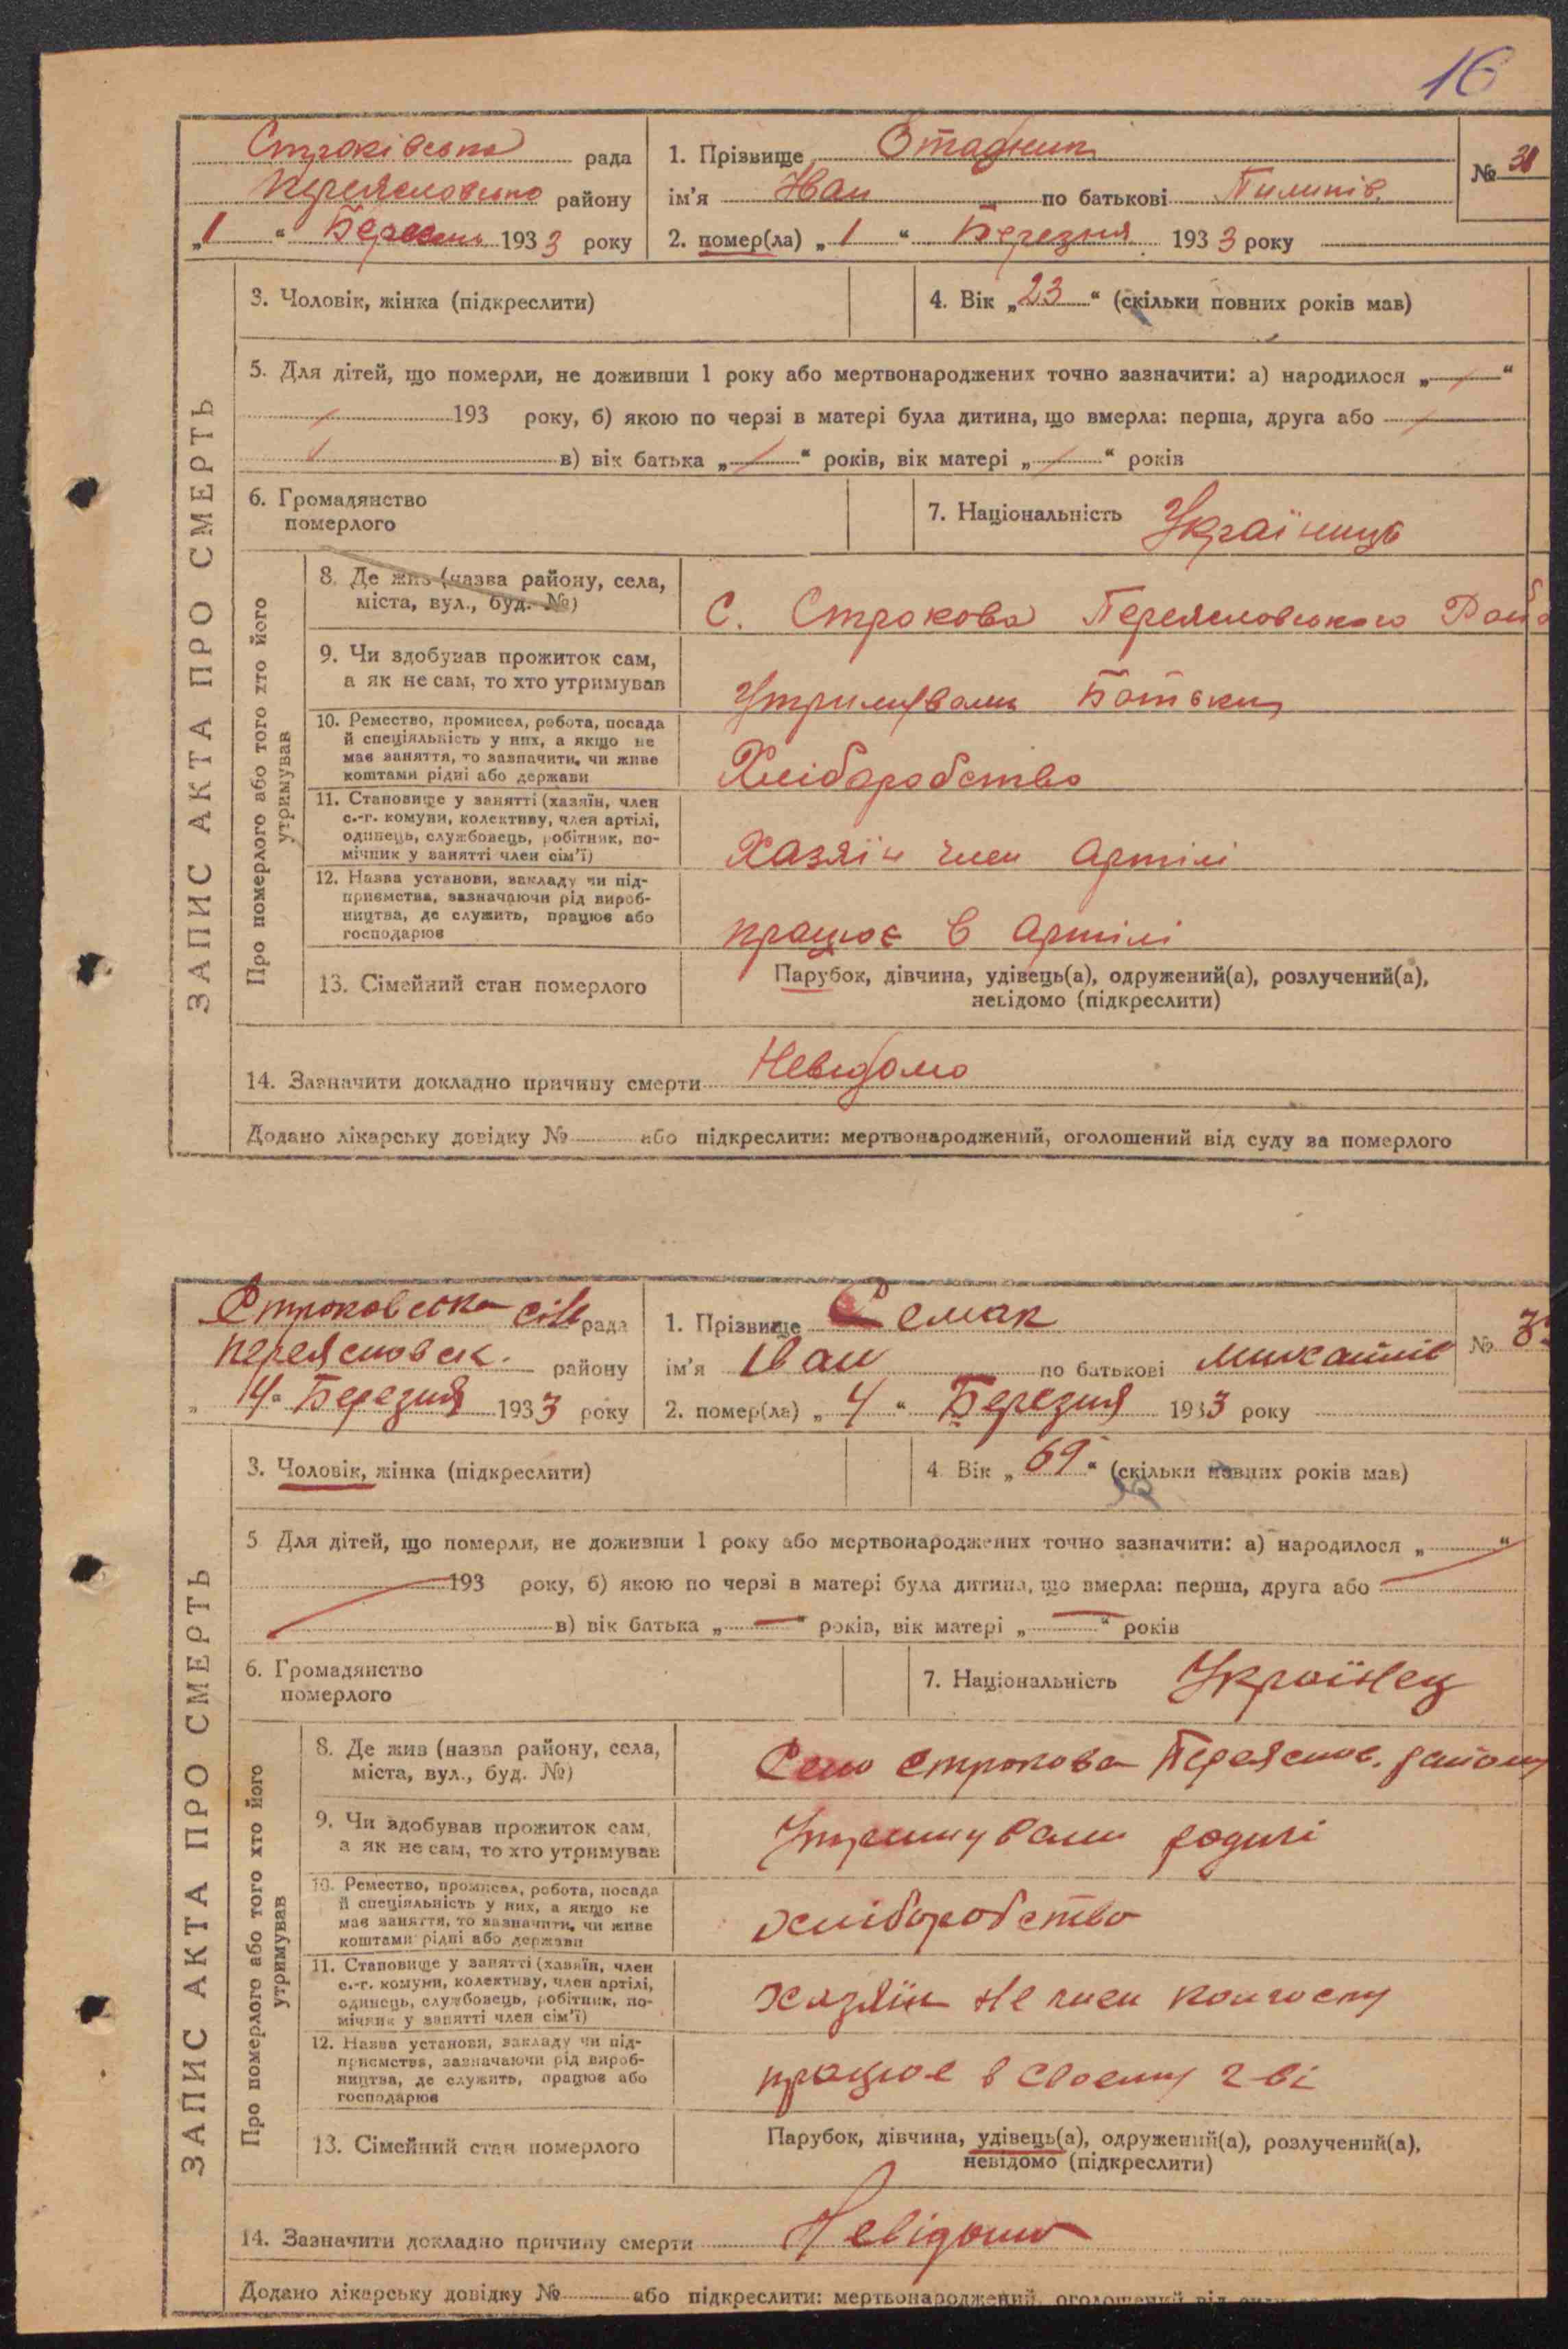 16
Строківська рада
Переясловсько району
„1“ Березня 1933 року
1. Прізвище
ім'я Иван по батькові Пилипів.
№ 31
2. помер(ла) „1“ Березня 1933 року
ЗАПИС АКТА ПРО СМЕРТЬ
3. Чоловік, жінка (підкреслити)
4. Вік „23“ (скільки повних років мав)
5. Для дітей, що померли, не доживши 1 року або мертвонароджених точно зазначити: а) народилося „ “
193 року, б) якою по черзі в матері була дитина, що вмерла: перша, друга або
в) вік батька „ “ років, вік матері „ “ років
6. Громадянство
померлого
7. Національність Українць
Про померлого або того хто його
утримував
8. Де жив (назва району, села,
міста, вул., буд. №)
С. Строкова Переясловського Рай
9. Чи здобував прожиток сам,
а як не сам, то хто утримував
Утримували Батьки
10. Ремество, промисел, робота, посада
й спеціяльність у них, а якщо не
має заняття, то зазначити, чи живе
коштами рідні або держави
Хліборобство
11. Становище у занятті (хазяїн, член
с.-г. комуни, колективу, член артілі,
одинець, службовець, робітник, по-
мічник у занятті член сім'ї)
Хазяїн член Артілі
12. Назва установи, закладу чи під-
приємства, зазначаючи рід вироб-
ництва, де служить, працює або
господарює
працює в Артілі
13. Сімейний стан померлого
Парубок, дівчина, удівець(а), одружений(а), розлучений(а),
невідомо (підкреслити)
14. Зазначити докладно причину смерти Невидомо
Додано лікарську довідку № або підкреслити: мертвонароджений, оголошений від суду за померлого
Строковська сіль рада
переясловск. району
„4“ Березня 1933 року
1. Прізвище Семак
ім'я Іван по батькові Михайлів
№ 3
2. помер(ла) „4“ Березня 1933 року
ЗАПИС АКТА ПРО СМЕРТЬ
3. Чоловік, жінка (підкреслити)
4 Вік „69“ (скільки повних років мав)
5 Для дітей, що померли, не доживши 1 року або мертвонароджених точно зазначити: а) народилося „ “
193 року, б) якою по черзі в матері була дитина, що вмерла: перша, друга або
в) вік батька „ “ років, вік матері „ “ років
6. Громадянство
померлого
7. Національність Українец
Про померлого або того хто його
утримував
8. Де жив (назва району, села,
міста, вул., буд. №)
Село Строкова Переяслов. району
9. Чи здобував прожиток сам,
а як не сам, то хто утримував
Утримували родичі
10. Ремество, промисел, робота, посада
й спеціяльність у них, а якщо не
має заняття, то зазначити, чи живе
коштами рідні або держави
хліборобство
11. Становище у занятті (хазяїн, член
с.-г. комуни, колективу, член артілі,
одинець, службовець, робітник, по-
мічник у занятті член сім'ї)
хазяїн не член колгоспу
12. Назва установи, закладу чи під-
приємства, зазначаючи рід вироб-
ництва, де служить, працює або
господарює
працює в своєму г-ві
13. Сімейний стан померлого
Парубок, дівчина, удівець(а), одружений(а), розлучений(а),
невідомо (підкреслити)
14. Зазначити докладно причину смерти Невідомо
Додано лікарську довідку № або підкреслити: мертвонароджений, оголошений від